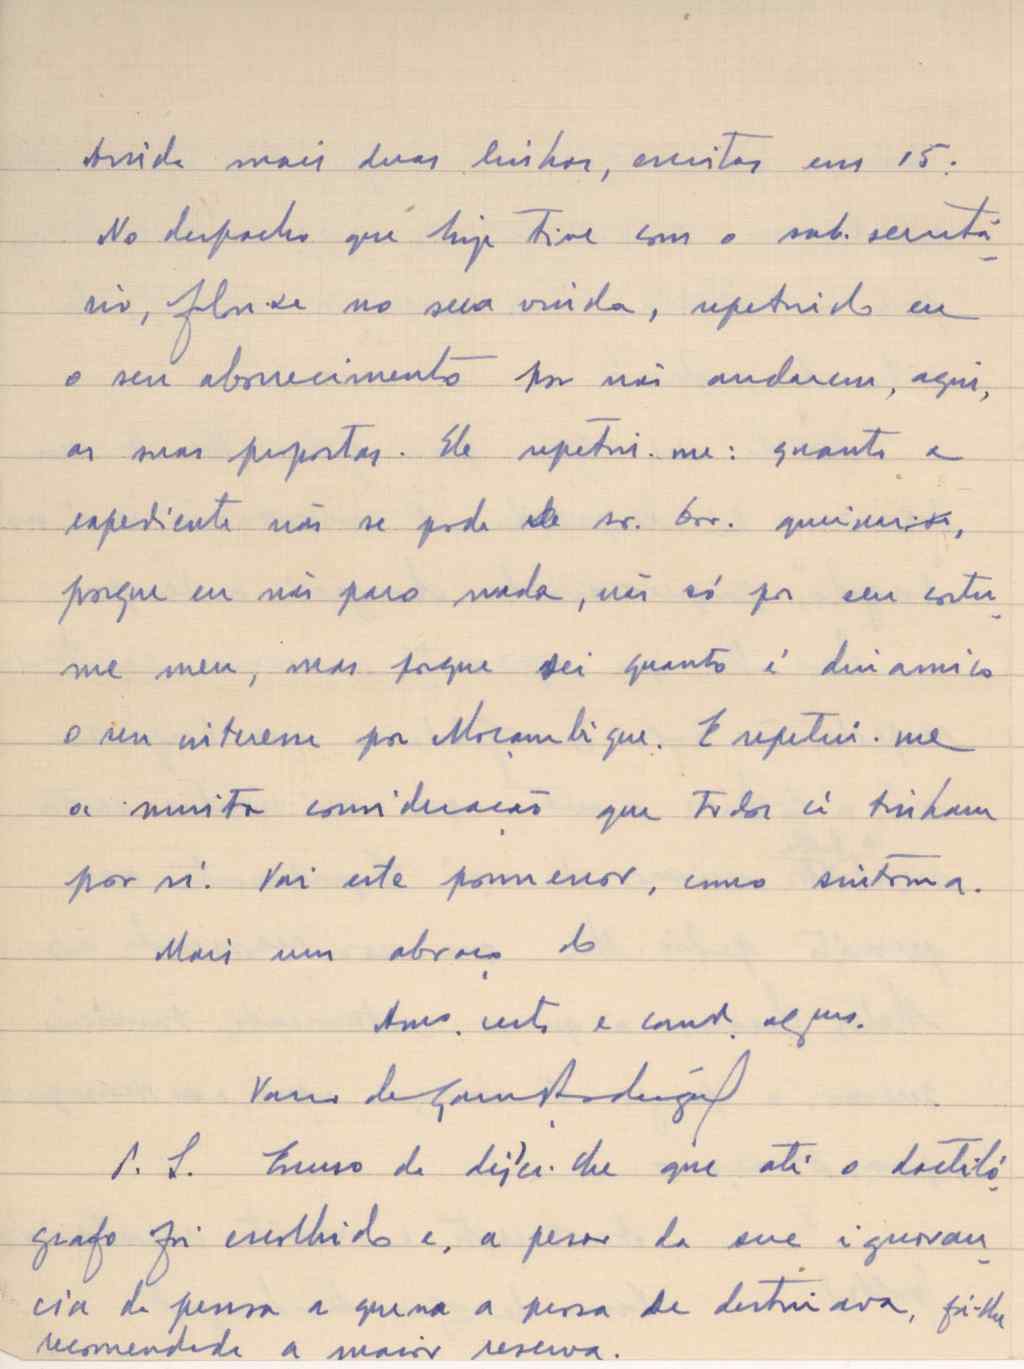 Ainda mais duas linhas, escritas em 15.
No despacho que hoje tive com o sub-secretá-
rio, falou-se na sua vinda, repetindo eu
o seu aborrecimento por não andarem, aqui,
as suas propostas. Ele repetiu-me: quanto a
expediente não se pode o sr. Gov. queixar-se,
porque eu não paro nada, não só por ser costu-
me meu, mas porque sei quanto é dinamico
o seu interesse por Moçambique. E repetiu-me
a muita consideração que todos cá tinham
por si. Vai este pormenor, como sintoma.
Mais um abraço do
Amo. certo e
Vasco de Gama Rodrigues
P. S. Escuso de dizer-lhe que até o dactiló-
grafo foi escolhido e, apesar da sua ignoran-
cia da pessoa a quem a se destinava, foi-lhe
recomendada a maior reserva.